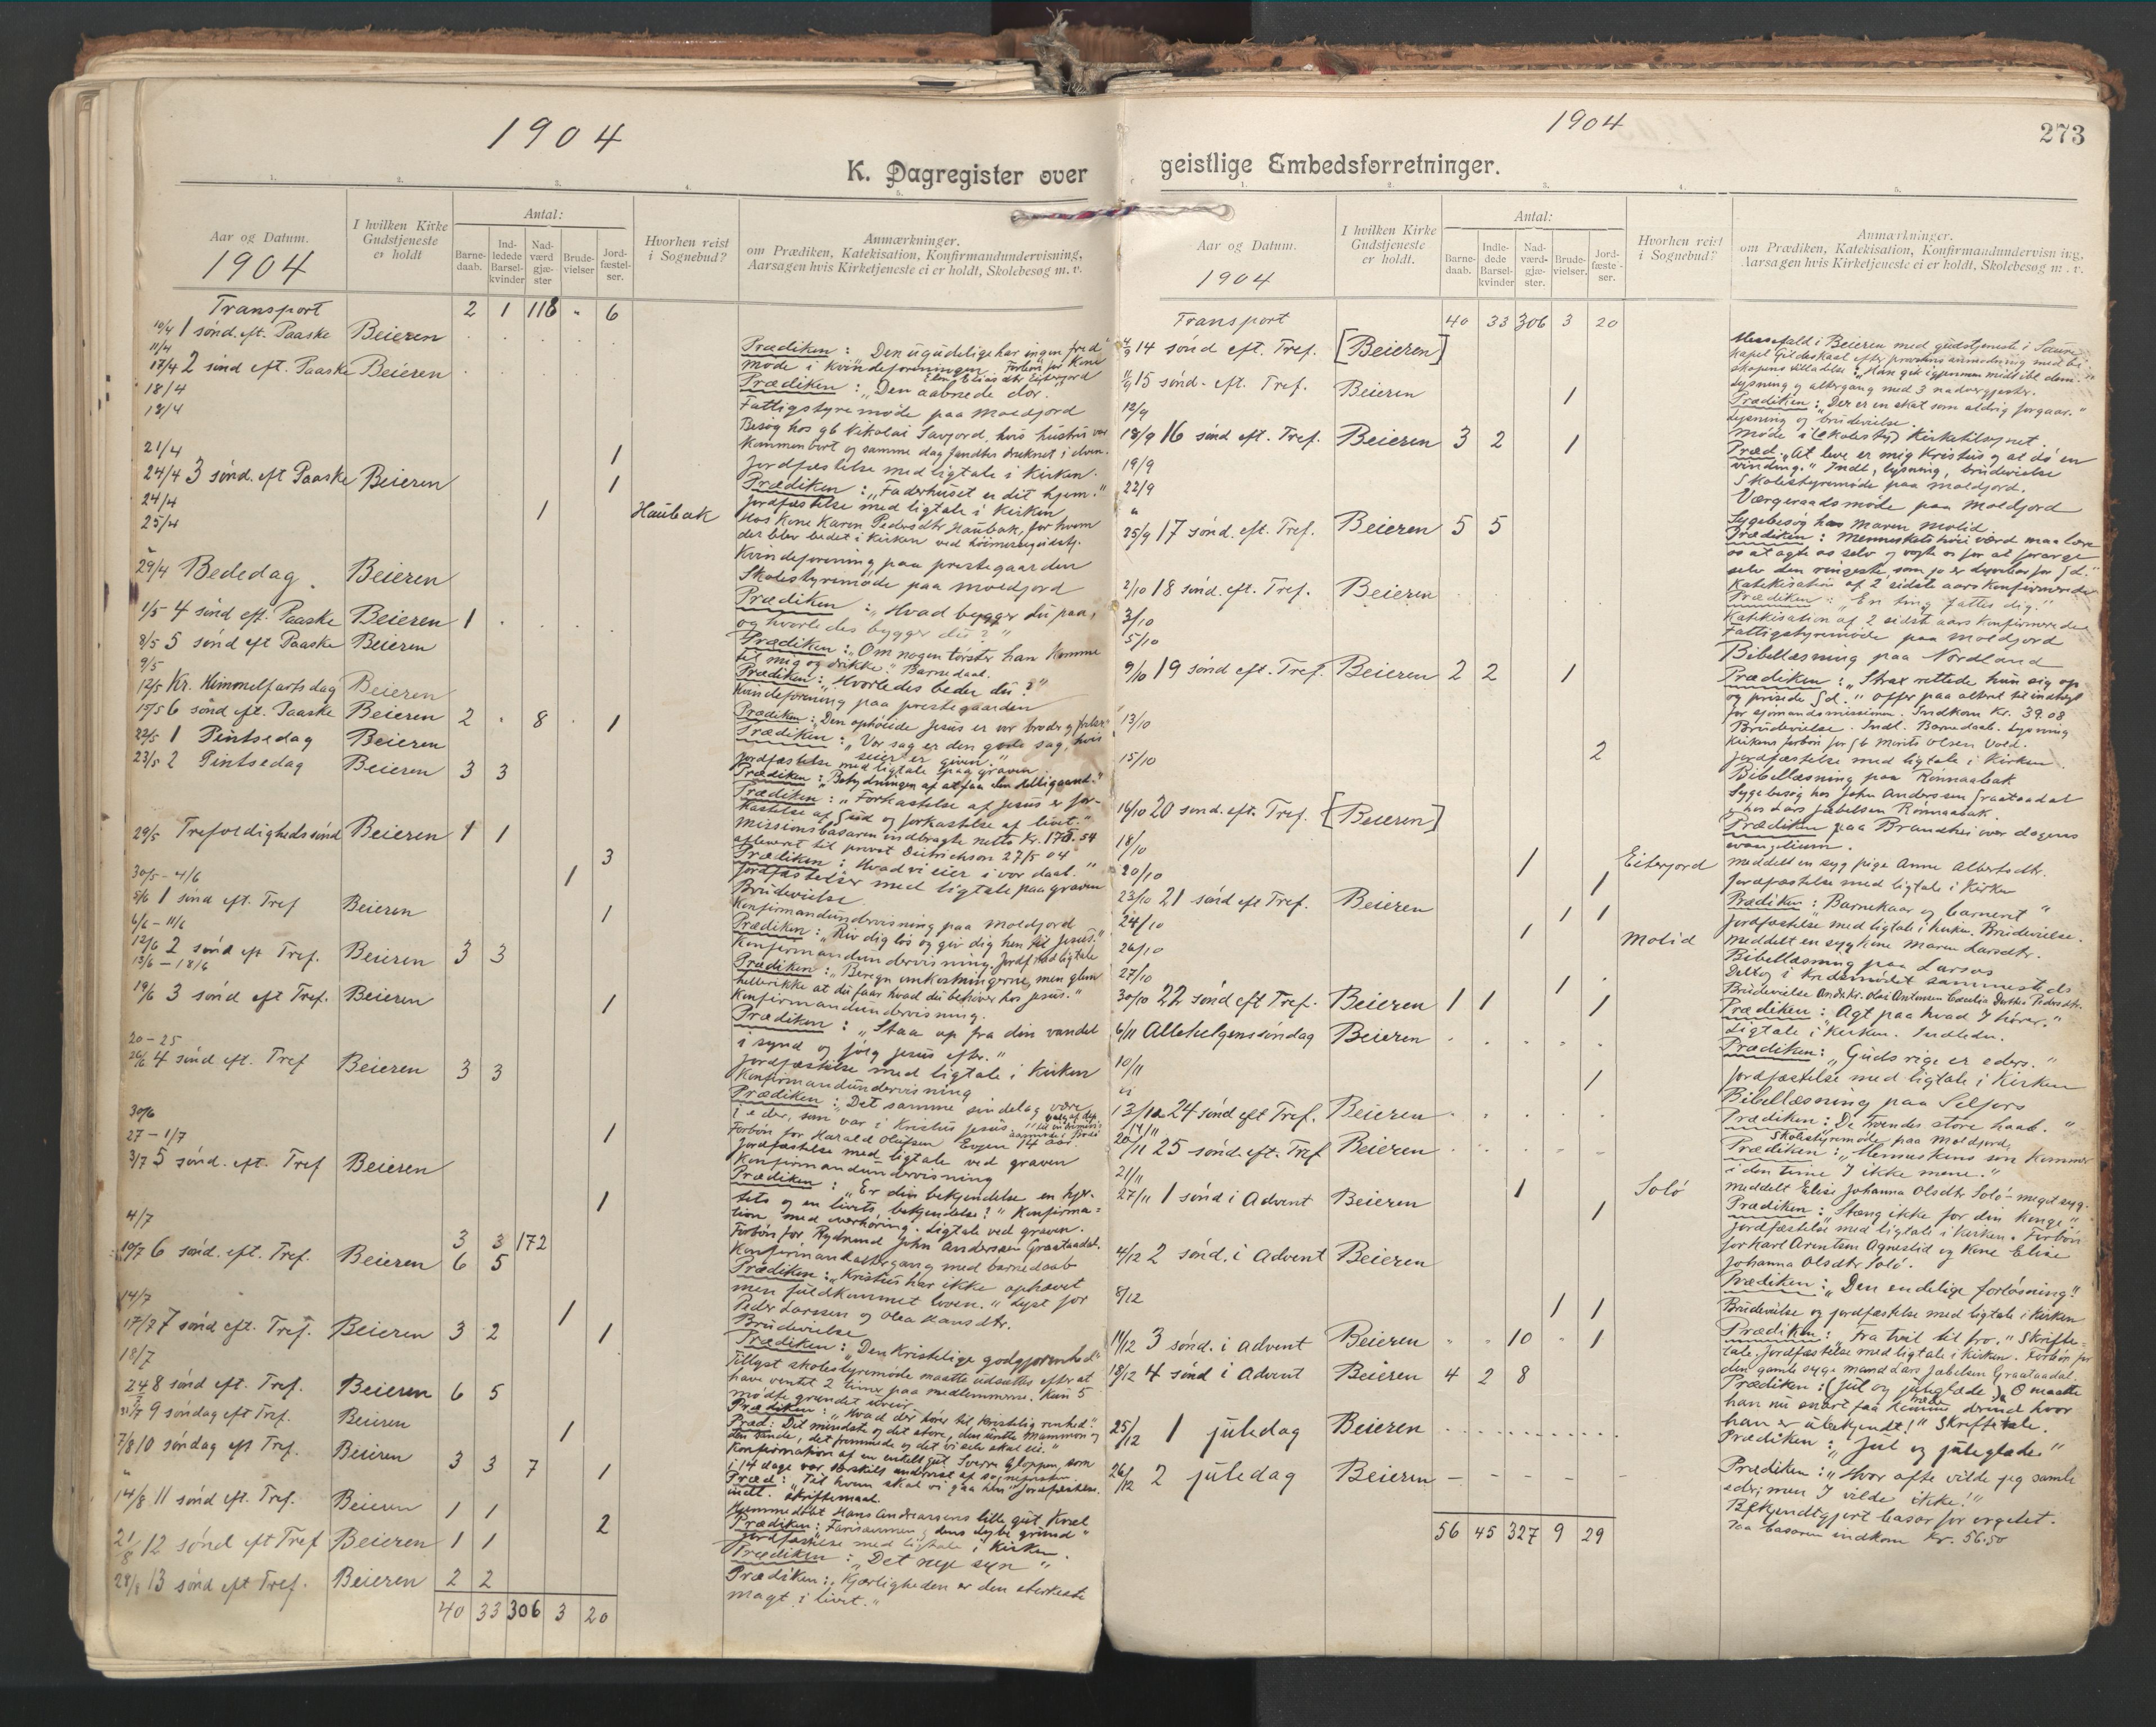 1904
K. Dagregister over
1. 2. 3. 4. 5.
Aar og Datum.
1904
I hvilken Kirke Gudstjeneste er holdt
Antal:
Barne-daab.
Ind-ledede Barsel-kvinder
Nad-værd gjæ-ster
Brude-vielser
Jord-fæstel-ser.
Hvorhen reist i Sognebud?
Anmærkninger.
om Prædiken, Katekisation, Konfirmandundervisning,
Aarsagen hvis Kirketjeneste ei er holdt, Skolebesøg m. v.
Transport 2 1 118 " 6
10/4 1 sønd. eft. Paaske Beieren
11/4
17/4 2 sønd eft. Paaske Beieren
18/4
18/4
21/4 1
24/4 3 sønd. eft Paaske Beieren 1
24/4 1 Haubak
25/4
29/4 Bededag Beieren
1/5 4 sønd eft. Paaske Beieren 1
8/5 5 sønd eft Paaske Beieren
9/5
12/5 Kr. Himmelfartsdag Beieren
15/5 6 sønd eft. Paaske Beieren 2 8 1
22/5 1 Pintsedag Beieren
23/5 2 Pintsedag Beieren 3 3
29/5 Trefoldighedssønd Beieren 1 1
3
30/5 - 4/6 1
5/6 1 sønd eft. Tref Beieren 1
6/6 - 11/6
12/6 2 sønd eft Tref. Beieren 3 3
13/6 - 18/6
19/6 3 sønd eft Tref. Beieren 1
20 - 25
26/6 4 sønd eft. Tref Beieren 3 3
30/6
27 - 1/7 1
3/7 5 sønd. eft. Tref Beieren
1
4/7 3 3 172
10/7 6 sønd. eft. Tref. Beieren 6 5
14/7 1
17/7 7 sønd eft. Tref. Beieren 3 2 1
18/7
24/7 8 sønd eft. Tref. Beieren 6 5
31/7 9 søndag eft Tref. Beieren 1
7/8 10 søndag eft Tref. Beieren 3 3 7 1
14/8 11 sønd eft. Tref. Beieren 1 1 2
21/8 12 sønd eft Tref Beieren 1 1
28/8 13 sønd eft Tref. Beieren 2 2
40 33 306 3 20
Prædiken: Den ugudelige har ingen fred
Møde i Kvindeforeningen. Forbøn for Kone
Prædiken: "Den aabnede dør.
Fattigstyremøde paa Moldjord
Besøg hos gb Nikolai Savjord, hvis hustru var
kommen bort og samme dag fandtes druknet i elven.
Jordfæstelse med ligtale i Kirken.
Prædiken: "Faderhuset er dit hjem."
Jordfæstelse med ligtale i Kirken
Hos Kone Karen Pedersdtr Haubak, for hvem
der blev bedet i Kirken ved
Kvindeforening paa prestegaarden
Skolestyremøde paa Moldjord
Prædiken: "Hvad bygger du paa,
og hvorledes bygger du?"
Prædiken: "Om nogen tørster han komme
til mig og drikke." Barnedaab.
Prædiken: Hvorledes beder du?"
Kvindeforening paa prestegaarden
Prædiken: "Den ophøiede Jesus er vor broder og
Prædiken: "Vor sag er den gode sag, hvis
seier er given."
Jordfæstelse med ligtale paa graven.
Prædiken: "Betydningen af at faa den Helligaand."
Prædiken: "Forkastelse af Jesus er for-
kastelse af Gud og forkastelse af livet."
Missionsbasaren indbragte netto Kr. 170.54
afleveret til provst Deitrichson 27/5 04
Prædiken: Hvad vi eier i vor daab."
Jordfæstelser med ligtale paa graven
Brudevielse.
Konfirmandundervisning paa Moldjord
Prædiken: "Riv dig løs og giv dig hen til Jesus."
Konfirmandundervisning. Jordf. med ligtale
Prædiken: "Beregn omkostningerne, men glem
hellerikke at du faar hvad du behøver hos Jesus."
Konfirmandundervisning.
Prædiken: "Staa op fra din vandel
i synd og følg Jesus efter."
Jordfæstelse med ligtale i Kirken
Konfirmandundervisning
Prædiken: "Det samme sindelag være
i eder, som var i Kristus Jesus"
Forbøn for Harald Olufsen Evjen 14 aar.
Jordfæstelse med ligtale ved graven
Konfirmandundervisning
Prædiken: "Er din bekjendelse en hjer-
tets og en livets bekjendelse?" Konfirma-
tion med overhøring. Ligtale ved graven.
Forbøn for Rydmand John Anderssen Graataadal.
Konfirmandaltergang med barnedaab
Prædiken: "Kristus har ikke ophævet
men fuldkommet loven." Lyst for
Peder Larssen og Olea Hansdtr.
Brudevielse
Prædiken: "Den Kristelige godgjørenhed"
Tillyst skolestyremøde maatte udsættes efter at
have ventet 2 timer paa medlemmerne. Kun 5
mødte grundet uveir
Prædiken: "Hvad der hører til kristelig renhed".
Præd: Dit mindste og det store, den urette Mammon og
den sande, det fremmede og det vi selv skal eie."
Konfirmation af en gut Sverre Gloppen, som
i 14 dage var særskilt undervist af sognepresten.
Præd: "Til hvem skal vi gaa hen" Jordfæstelse.
indl. skriftemaal.
Hjemmedøbt Hans Andreassens lille gut Karl
Prædiken: Farisæernes dens dybe grund"
Jordfæstelse med ligtale i Kirken.
Prædiken: "Det nye syn"
Prædiken: "Kjærligheden er den sterkeste
magt i livet."
1904
273
geistlige Embedsforretninger.
1. 2. 3. 4. 5.
Aar og Datum.
1904
I hvilken Kirke Gudstjeneste er holdt.
Antal:
Barne-daab.
Indle-dede Barsel-kvinder
Nad-værd-gjæ-ster.
Brude-vielser.
Jord-fæste-ser.
Hvorhen reist i Sognebud?
Anmærkninger.
om Prædiken, Katekisation, Konfirmandundervisning,
Aarsagen hvis Kirketjeneste ei er holdt, Skolebesøg m. v.
Transport 40 33 306 3 20
4/9 14 sønd eft. Tref. [Beieren]
11/9 15 sønd. eft. Tref. Beieren 1
12/9
18/9 16 sønd eft. Tref. Beieren 3 2 1
19/9
22/9
"
25/9 17 sønd. eft. Tref. Beieren 5 5
2/10 18 sønd. eft. Tref. Beieren
3/10
5/10
9/10 19 sønd eft. Tref. Beieren 2 2 1
13/10
15/10 2
16/10 20 sønd. eft. Tref. [Beieren]
18/10 1 Eiterjord
20/10 1
23/10 21 sønd eft Tref. Beieren 1 1
24/10 1 Molid
26/10
27/10 1
30/10 22 sønd eft Tref. Beieren 1 1 1
6/11 Allehelgenssøndag Beieren
10/11 1
13/11 24 sønd eft Tref. Beieren
14/11
20/11 25 sønd. eft. Tref Beieren
21/11 1 Solö
27/11 1 sønd i Advent Beieren 1
4/12 2 sønd. i Advent Beieren
8/12 1 1
11/12 3 sønd. i Advent Beieren " " 10 " 1
18/12 4 sønd i Advent Beieren 4 2 8
25/12 1 juledag Beieren
26/12 2 juledag Beieren
56 45 327 9 29
Messefald i Beieren med gudstjeneste i Saura
kapel Gildeskaal efter provstens anmodning med bi-
skopens tilladelse: "Han gik igjennem midt iblt dem."
Lysning og altergang med 3 nadvergjester.
Prædiken: "Der er en skat som aldrig forgaar."
Lysning og brudevielse.
Møde i (Skolesty) Kirketilsynet.
Præd. "At leve er mig Kristus og at dø en
vinding." Indl., lysning, brudevielse
Skolestyremøde paa Moldjord.
Værgeraadsmøde paa Moldjord
Sygebesøg hos Maren Molid.
Prædiken: Menneskets høie værd maa lære
os at agte os selv og vogte os for at forarge
selv den ringeste, som jo er dyrebar for Gd."
Katekisation af 2 sidste aars Konfirmerede
Prædiken: "En ting fattes dig."
Katekisation af 2 sidst aars konfirmerede
Fattigstyremøde paa Moldjord
Bibellæsning paa Nordland
Prædiken: "Strax rettede hun sig op
og prisede Gd." Offer paa alteret til indtægt
for sjømandsmissionen. Indkom Kr. 39.08
Brudevielse. Indl. Barnedaab. Lysning
Kirkens forbøn for gb Morits Olsen Vold.
Jordfæstelse med ligtale i Kirken.
Bibellæsning paa Rønnaabak
Sygebesøg hos John Anderssen Graataadal
i hos Lars Jakobsen Rønnaabak.
Prædiken paa Brandhei over dagens
evangelium.
Meddelt en syg pige Anne Albertsdtr.
Jordfæstelse med ligtale i Kirken
Prædiken: Barnekaar og barneret"
Jordfæstelse med ligtale i Kirken. Brudevielse.
Meddelt en syg kone Maren Larsdtr.
Bibellæsning paa Larsos
Deltog i kredsmødet sammesteds
Brudevielse Andr. Kr. Olai Antonsen Cæcilia Dorthea Pedersdtr.
Prædiken: "Agt paa hvad I hører."
Ligtale i Kirken. Indleden.
Prædiken: "Guds rige er eders."
Jordfæstelse med ligtale i Kirken
Bibellæsning paa Selfors
Prædiken: De troendes store haab."
Skolestyremøde paa Moldjord
Prædiken: "Menneskens søn kommer
i den time I ikke mene."
Meddelt Elise Johanna Olsdtr Solö - meget syg.
Prædiken: "Stæng ikke for din Konge"
Jordfæstelse med ligtale i Kirken. Forbøn
for Karl Arentsen Agnestid og Kone Elise
Johanna Olsdtr Solö.
Prædiken: "Den endelige forløsning."
Brudevielse og jordfæstelse med ligtale i Kirken
Prædiken: "Fra tvil til tro." Skrifte-
tale. Jordfæstelse med ligtale i Kirken. Forbøn for
den gamle syge mand Lars Jakobsen Graataadal.
Prædiken: (Jul og juleglæde) "O maatte
han nu snart faa komme derind hvor
han er ubekjendt!" Skriftetale.
Prædiken: "Jul og juleglæde"
Prædiken: "Hvor ofte vilde jeg samle
eder; men I vilde ikke!"
Bekjendtgjort basar for orgelet.
Paa basaren indkom Kr. 56.50